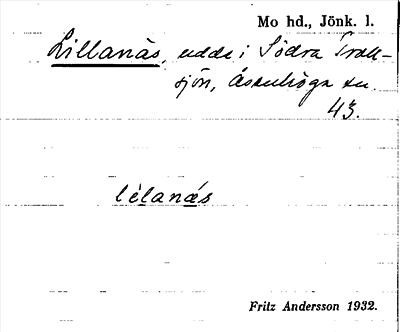 Mo hd., Jönk. l.
Lillanäs, udde i Södra Svan-
sjön, Åsenhöga sn.
43.
lélanäs
Fritz Andersson 1932.